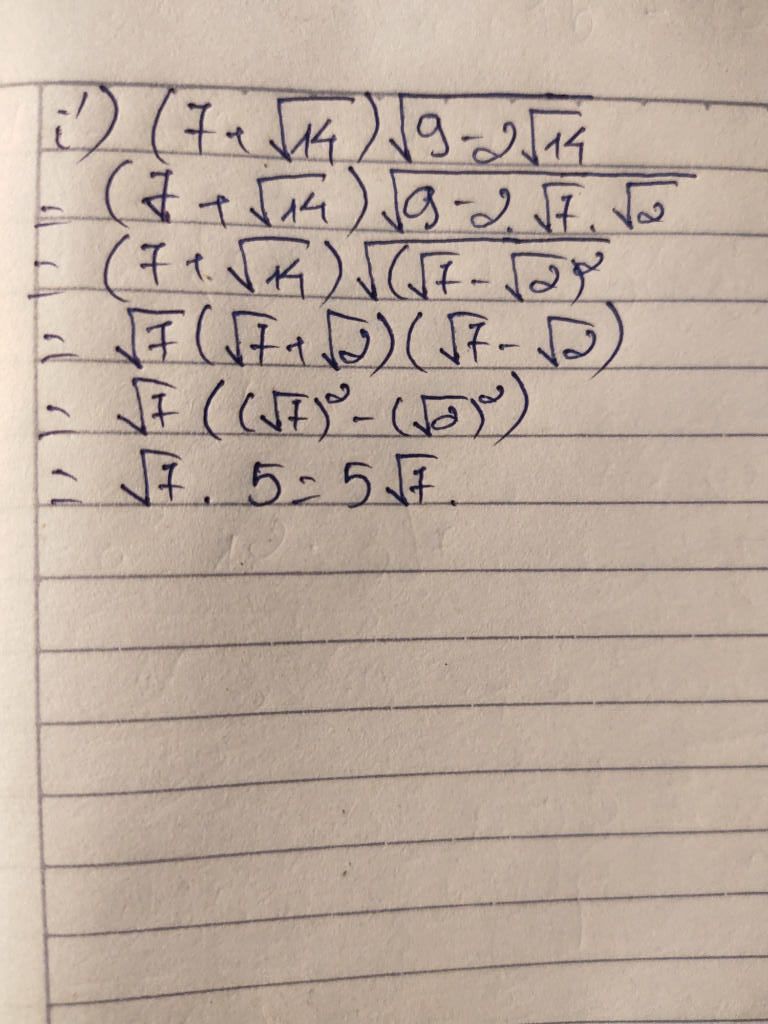 i') (7+√14)√(9-2√14)
= (7+√14)√(9-2.√7.√2)
= (7+√14)√((√7-√2)²)
= √7(√7+√2)(√7-√2)
= √7((√7)²-(√2)²)
= √7 . 5 = 5√7.